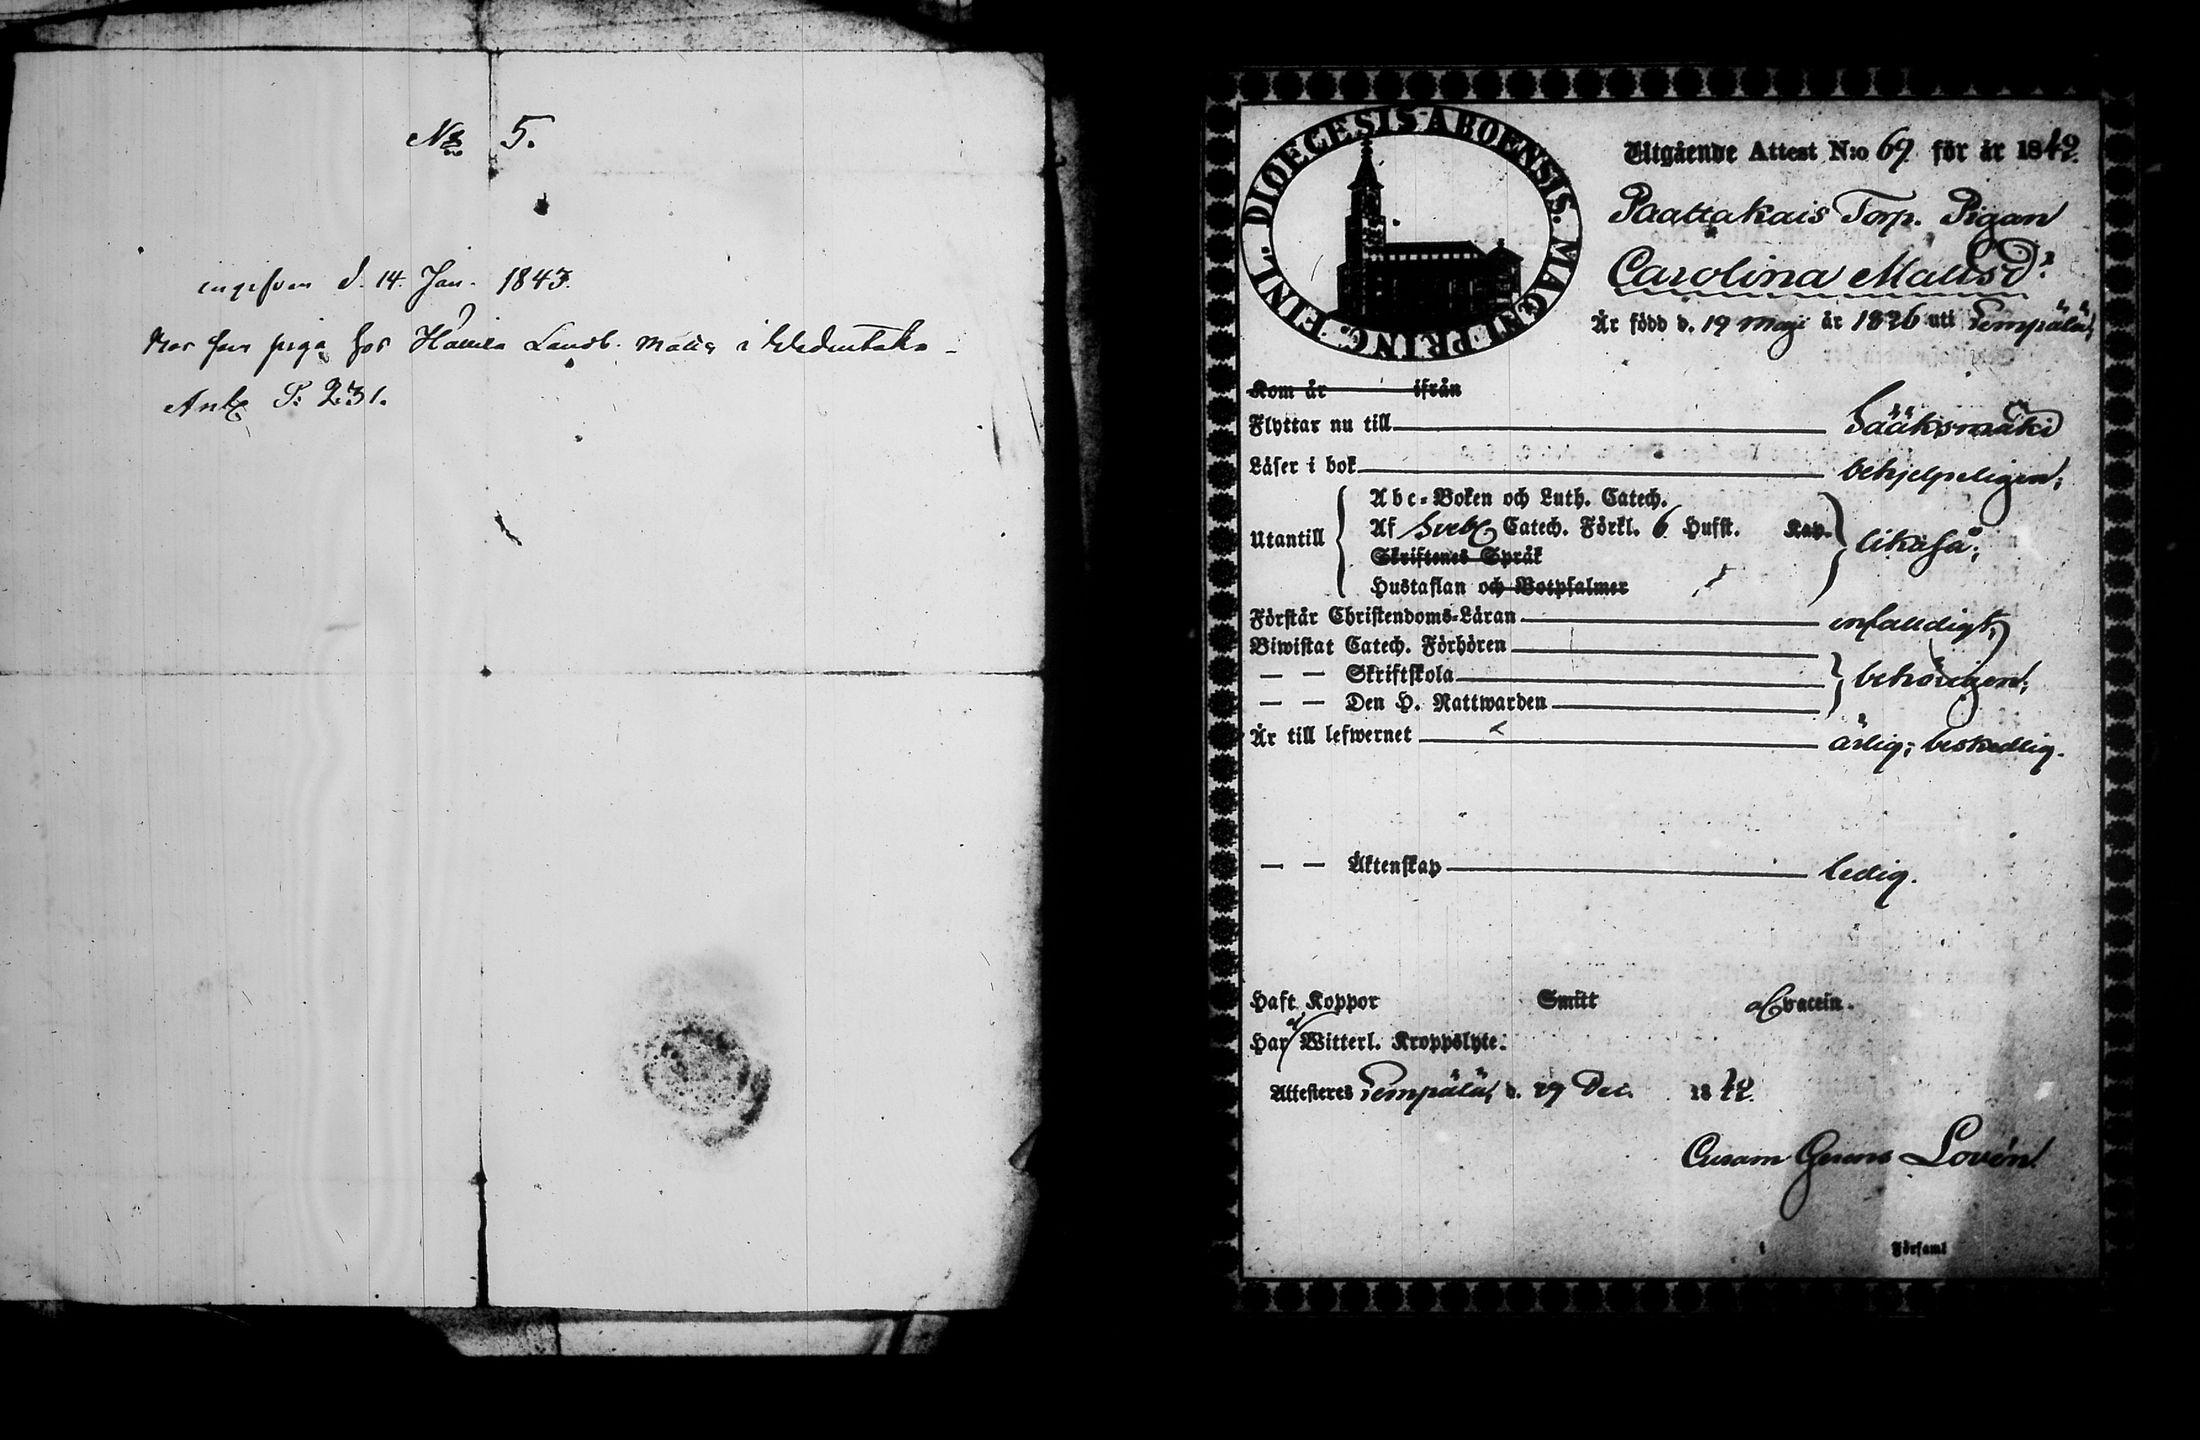 No 5.
ingifven d. 14. Jan. 1843.
piga hos Landb. Matts i
Antx P: 231.
FINL. DIOECESIS ABOENSIS. MAGNI PRINC.
Utgående Attest N:o 69 för år 1842.
Paattakais Torp. Pigan
Carolina Mattsdr:
Är född d. 19 Maji år 1826 uti Lempälä,
Kom år ifrån
Flyttar nu till Sääksmäki
Läser i bok behjelpeligen;
Abc-Boken och Luth. Catech.
Utantill Af Sveb. Catech. Förkl. 6 Hufst. Kap. likaså;
Skriftenes Språk
Hustaflan och Botpsalmer
Förstår Christendoms-Läran enfaldigt;
Biwistat Catech. Förhören
— — Skriftskola behörigen;
— — Den H. Nattwarden
Är till lefwernet ärlig; beskedlig.
— — Äktenskap ledig.
Haft Koppor Smitt af vaccin.
Har ej Witterl. Kroppslyte.
Attesteres Lempälä, d. 29 Dec. 1842.
Curam Gerens Lovén.
i Församl